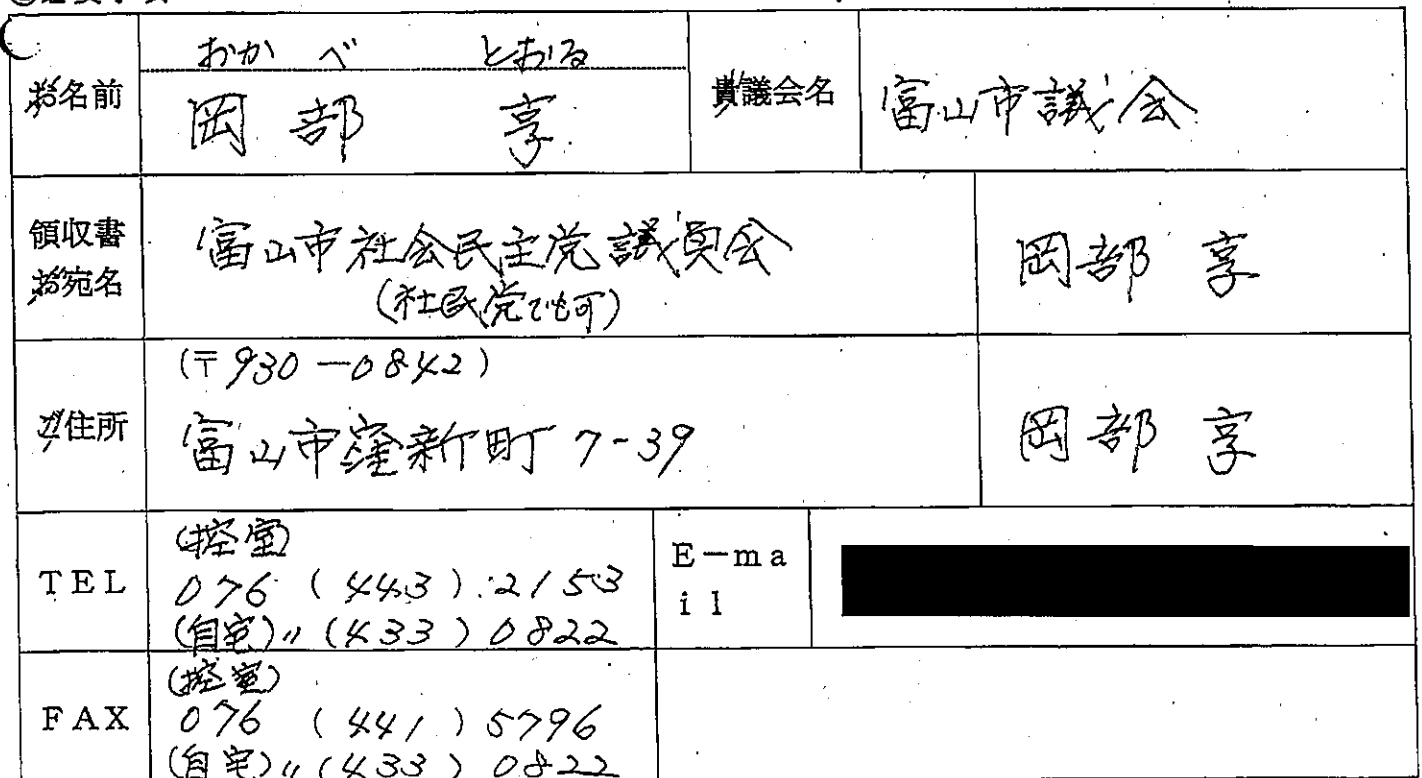 おかべ とおる
お名前
岡部 享
貴議会名
富山市議会
領収書
お宛名
富山市社会民主党議員会
(社民党でも可)
岡部 享
(〒930-0842)
ご住所
富山市窪新町7-39
岡部 享
TEL
(控室)
076 (443) 2153
(自宅)〃(433) 0822
E-ma
il
FAX
(控室)
076 (441) 5796
(自宅)〃(433) 0822